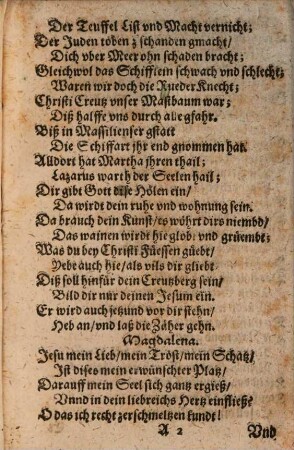 Der Teuffel List vnd Macht vernicht;
Der Juden toben z schanden gmacht/
Dich vber Meer ohn schaden bracht;
Gleichwol das Schifflein schwach vnd schlecht;
Waren wir doch die Rueder Knecht;
Christi Creutz vnser Mastbaum war;
Diß halffe vns durch alle gfahr.
Biß in Massilienser gstatt
Die Schiffart jhr end gnommen hat.
Alldort hat Martha jhren thail;
Lazarus warth der Seelen hail;
Dir gibt Gott dise Hölen ein/
Da wirdt dein ruhe vnd wohnung sein.
Da brauch dein Kunst/es wöhrt dirs niembd/
Das wainen wirdt hie glob: vnd grüembt;
Was du bey Christi Füessen güebt/
Yebe auch hie/als vils dir gliebt
Diß soll hinfür dein Creutzberg sein/
Bild dir nur deinen Jesum ein.
Er wird auch jetzund vor dir stehn/
Heb an/vnd laß die Zäher gehn.
Magdalena.
Jesu mein Lieb/mein Tröst/mein Schatz/
Ist dises mein erwünschter Platz/
Darauff mein Seel sich gantz ergieß/
Vnnd in dein liebreichs Hertz einfließ?
O das ich recht zerschmeltzen kundt!
A 2 Vnd